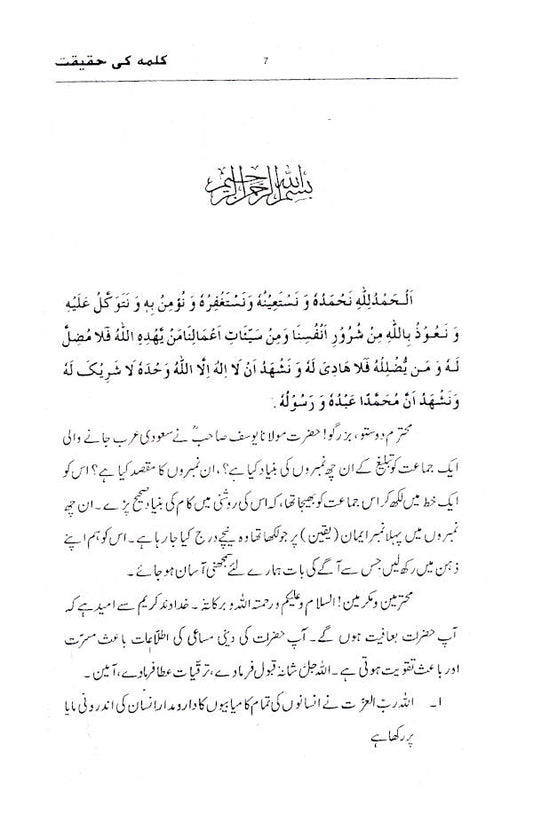 کلمہ کی حقیقت
7
بسم اللہ الرحمن الرحیم
اَلْحَمْدُلِلّٰهِ نَحْمَدُهٗ وَ نَسْتَعِيْنُهٗ وَنَسْتَغْفِرُهٗ وَ نُؤْمِنُ بِهٖ وَ نَتَوَكَّلُ عَلَيْهِ
وَ نَعُوْذُ بِاللّٰهِ مِنْ شُرُوْرِ اَنْفُسِنَا وَمِنْ سَيِّئَاتِ اَعْمَالِنَامَنْ يَّهْدِهِ اللّٰهُ فَلَا مُضِلَّ
لَهٗ وَ مَنْ يُّضْلِلْهُ فَلَا هَادِىَ لَهٗ وَ نَشْهَدُ اَنْ لَا اِلٰهَ اِلَّا اللّٰهُ وَحْدَهٗ لَا شَرِيْكَ لَهٗ
وَنَشْهَدُ اَنَّ مُحَمَّدًا عَبْدُهٗ وَ رَسُوْلُهٗ .
محترم دوستو، بزرگو! حضرت مولانا یوسف صاحبؒ نے سعودی عرب جانے والی
ایک جماعت کو تبلیغ کے ان چھ نمبروں کی بنیاد کیا ہے؟، ان نمبروں کا مقصد کیا ہے؟ اس کو
ایک خط میں لکھ کر اس جماعت کو بھیجا تھا، کہ اس کی روشنی میں کام کی بنیاد صحیح پڑے۔ ان چھ
نمبروں میں پہلا نمبر ایمان (یقین) پر جو لکھا تھا وہ نیچے درج کیا جارہا ہے۔ اس کو ہم اپنے
ذہن میں رکھ لیں جس سے آگے کی بات ہمارے لئے سمجھنی آسان ہو جائے۔
محترمین ومکرمین! السلام وعلیکم ورحمتہ اللہ وبرکاتہٗ۔ خداوند کریم سے امید ہے کہ
آپ حضرات بعافیت ہوں گے۔ آپ حضرات کی دینی مساعی کی اطلاعات باعث مسرّت
اور باعث تقویت ہوتی ہے۔ اللہ جلّ شانہٗ قبول فرماوے، ترقیات عطا فرماوے، آمین۔
۱۔ اللہ ربّ العزت نے انسانوں کی تمام کامیابیوں کا دارومدار انسان کی اندرونی مایا
پر رکھا ہے